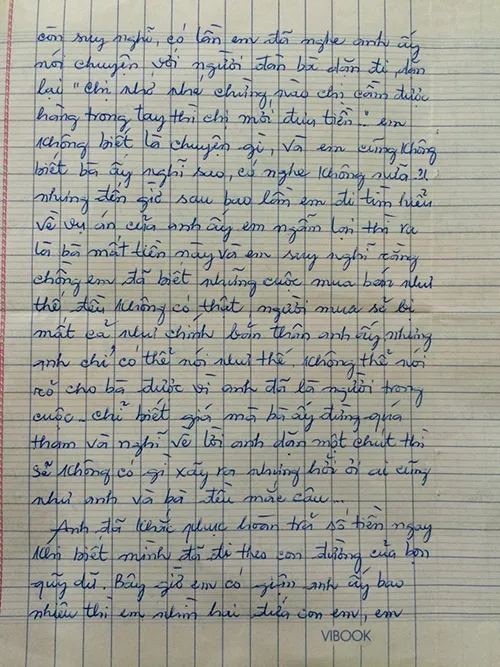 còn suy nghĩ, có lần em đã nghe anh ấy
nói chuyện với người đàn bà dặn đi dặn
lại "chị nhớ nhé chừng nào chị cầm được
hàng trong tay thì chị mới đưa tiền.." em
không biết là chuyện gì, và em cũng không
biết bà ấy nghĩ sao, có nghe không nữa?!
nhưng đến giờ sau bao lần em đi tìm hiểu
về vụ án của anh ấy em ngẫm lại thì ra
là bà mất tiền này và em suy nghĩ rằng
chồng em đã biết những cuộc mua bán như
thế đều không có thật, người mua sẽ bị
mất cả như chính bản thân anh ấy nhưng
anh chỉ có thể nói như thế. không thể nói
rõ cho bà được vì anh đã là người trong
cuộc.. chỉ biết giá mà bà ấy đừng quá
tham và nghĩ về lời anh dặn một chút thì
sẽ không có gì xảy ra nhưng hỡi ơi ai cũng
như anh và bà đều mắc câu...
Anh đã khắc phục hoàn trả số tiền ngay
khi biết mình đã đi theo con đường của bọn
quỹ dữ. Bây giờ em có giận anh ấy bao
nhiêu thì em nhìn hai đứa con em, em
VIBOOK